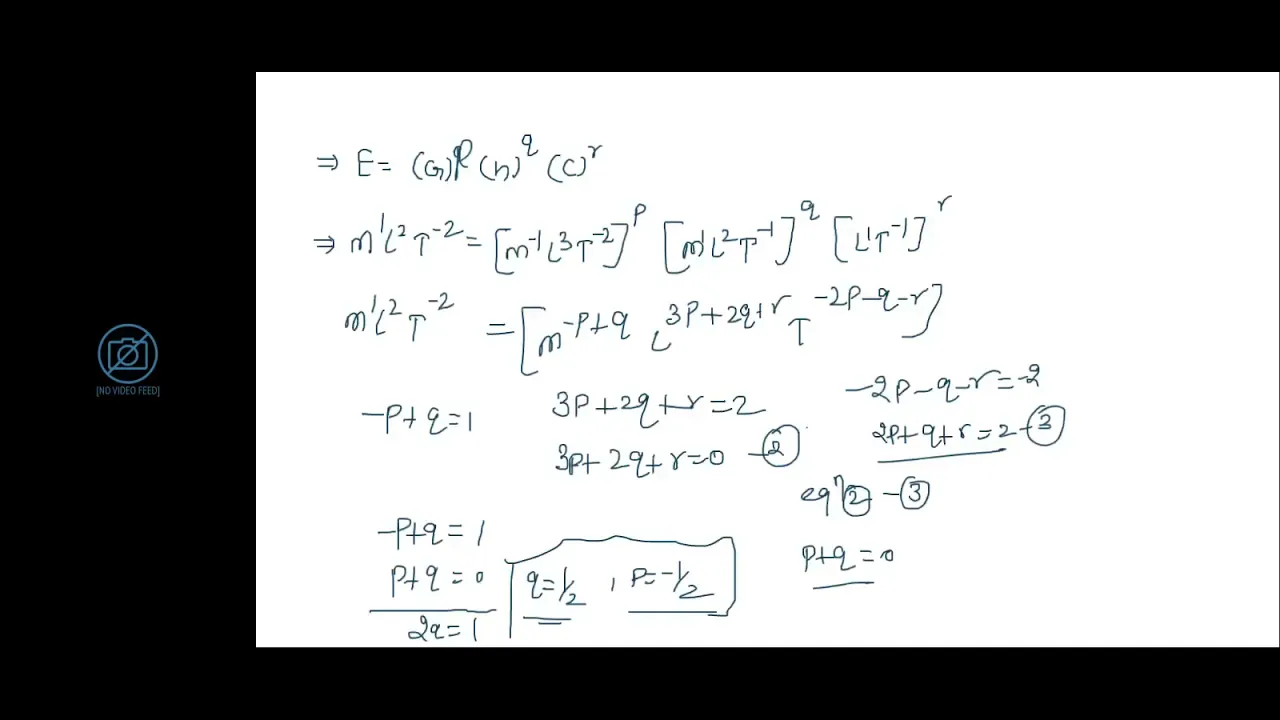 ⇒ E = (G)^p (h)^q (c)^r
⇒ M^1 L^2 T^-2 = [M^-1 L^3 T^-2]^p [M^1 L^2 T^-1]^q [L^1 T^-1]^r
M^1 L^2 T^-2 = [M^-p+q L^3p+2q+r T^-2p-q-r]
-p+q=1
3p+2q+r=2
3p+2q+r=0 -②
-2p-q-r=-2
2p+q+r=2-③
eqn ② - ③
p+q=0
-p+q=1
p+q=0
2q=1
q=1/2 , p=-1/2
[NO VIDEO FEED]